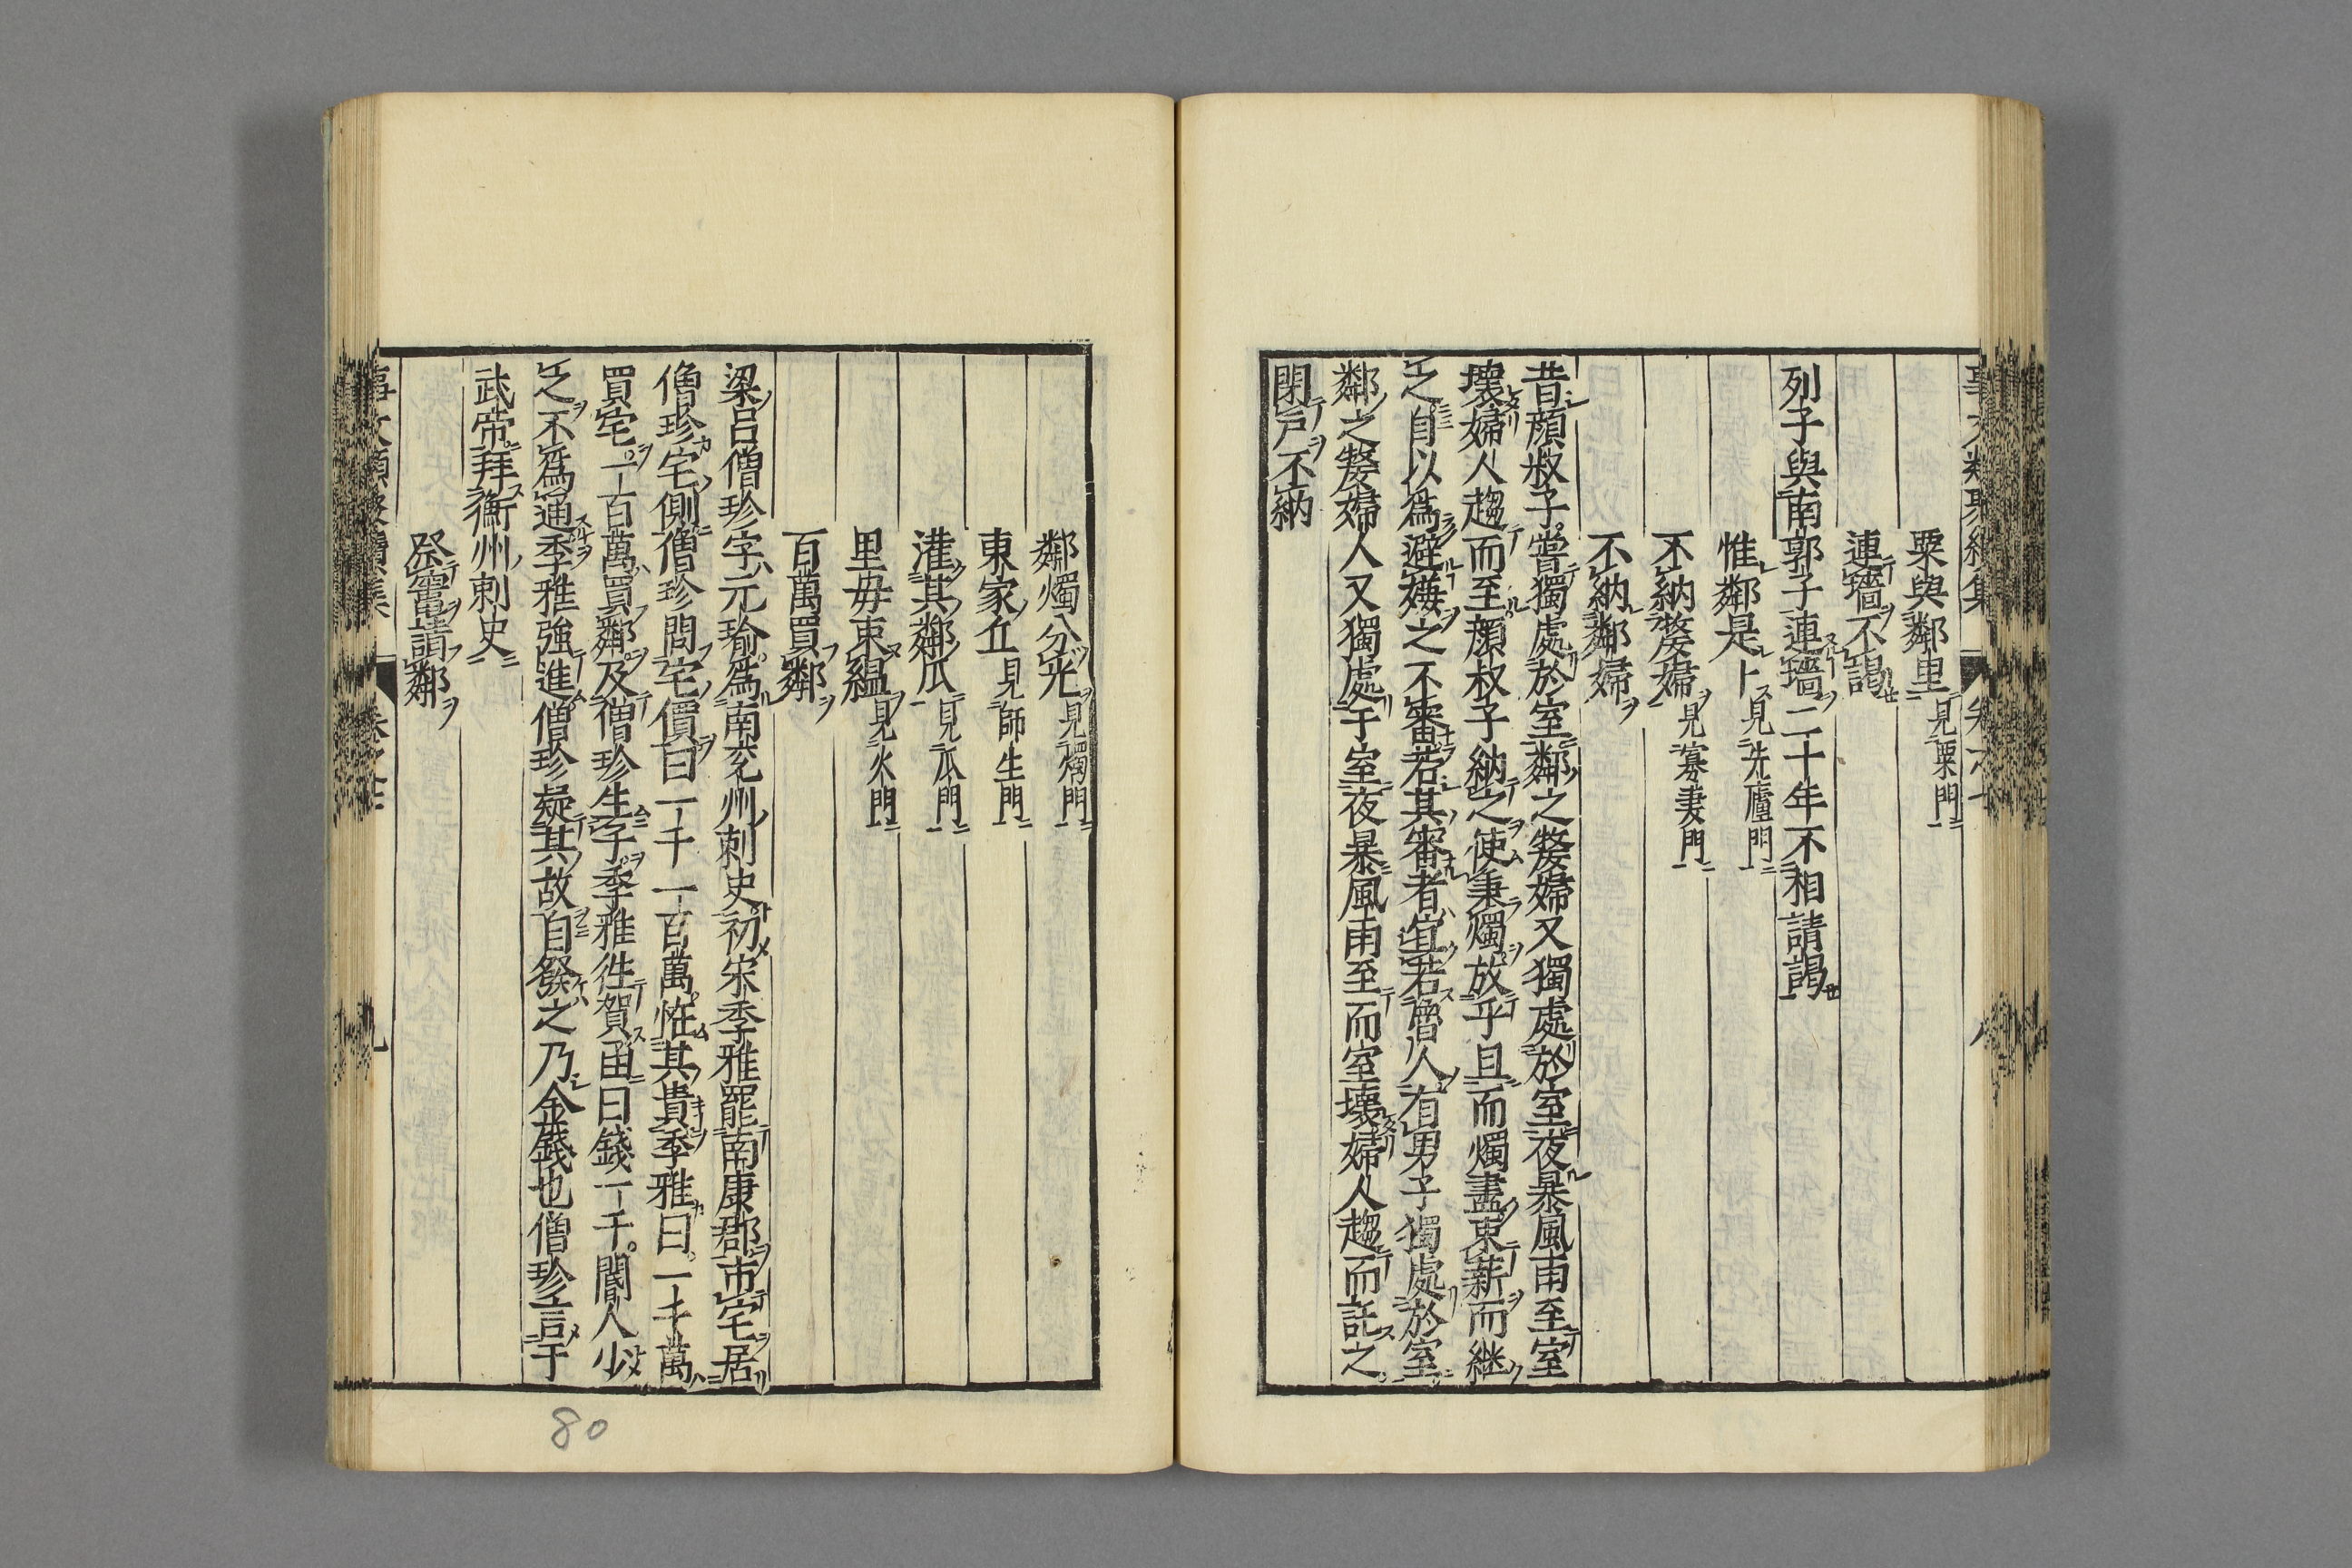 粟與鄰里見粟門
連墻不謁
列子與南郭子連墻二十年不相請謁
惟鄰是卜見先廬門
不納嫠婦見寡妻門
不納鄰婦
昔顔叔子嘗獨處於室鄰之嫠婦又獨處於室夜暴風雨至室
壞婦人趨而至顔叔子納之使秉燭放乎旦而燭盡束薪而継
之自以為避嫌之不審若其審者宜若魯人有男子獨處於室
鄰之嫠婦人又獨處于室夜暴風雨至而室壞婦人趨而託之
閉戸不納
鄰燭分光見燭門
東家丘見師生門
灌其鄰瓜見瓜門
里毋束緼見火門
百萬買鄰
梁呂僧珍字元瑜為南兖州刺史初宋季雅罷南康郡市宅居
僧珍宅側僧珍問宅價曰一千一百萬恠其貴季雅曰一千萬
買宅一百萬買鄰及僧珍生子季雅徃賀凾曰錢一千閽人少
之不為通季雅強進僧珍疑其故自發之乃金錢也僧珍言于
武帝拜衡州刺史
祭竃請鄰
九
80